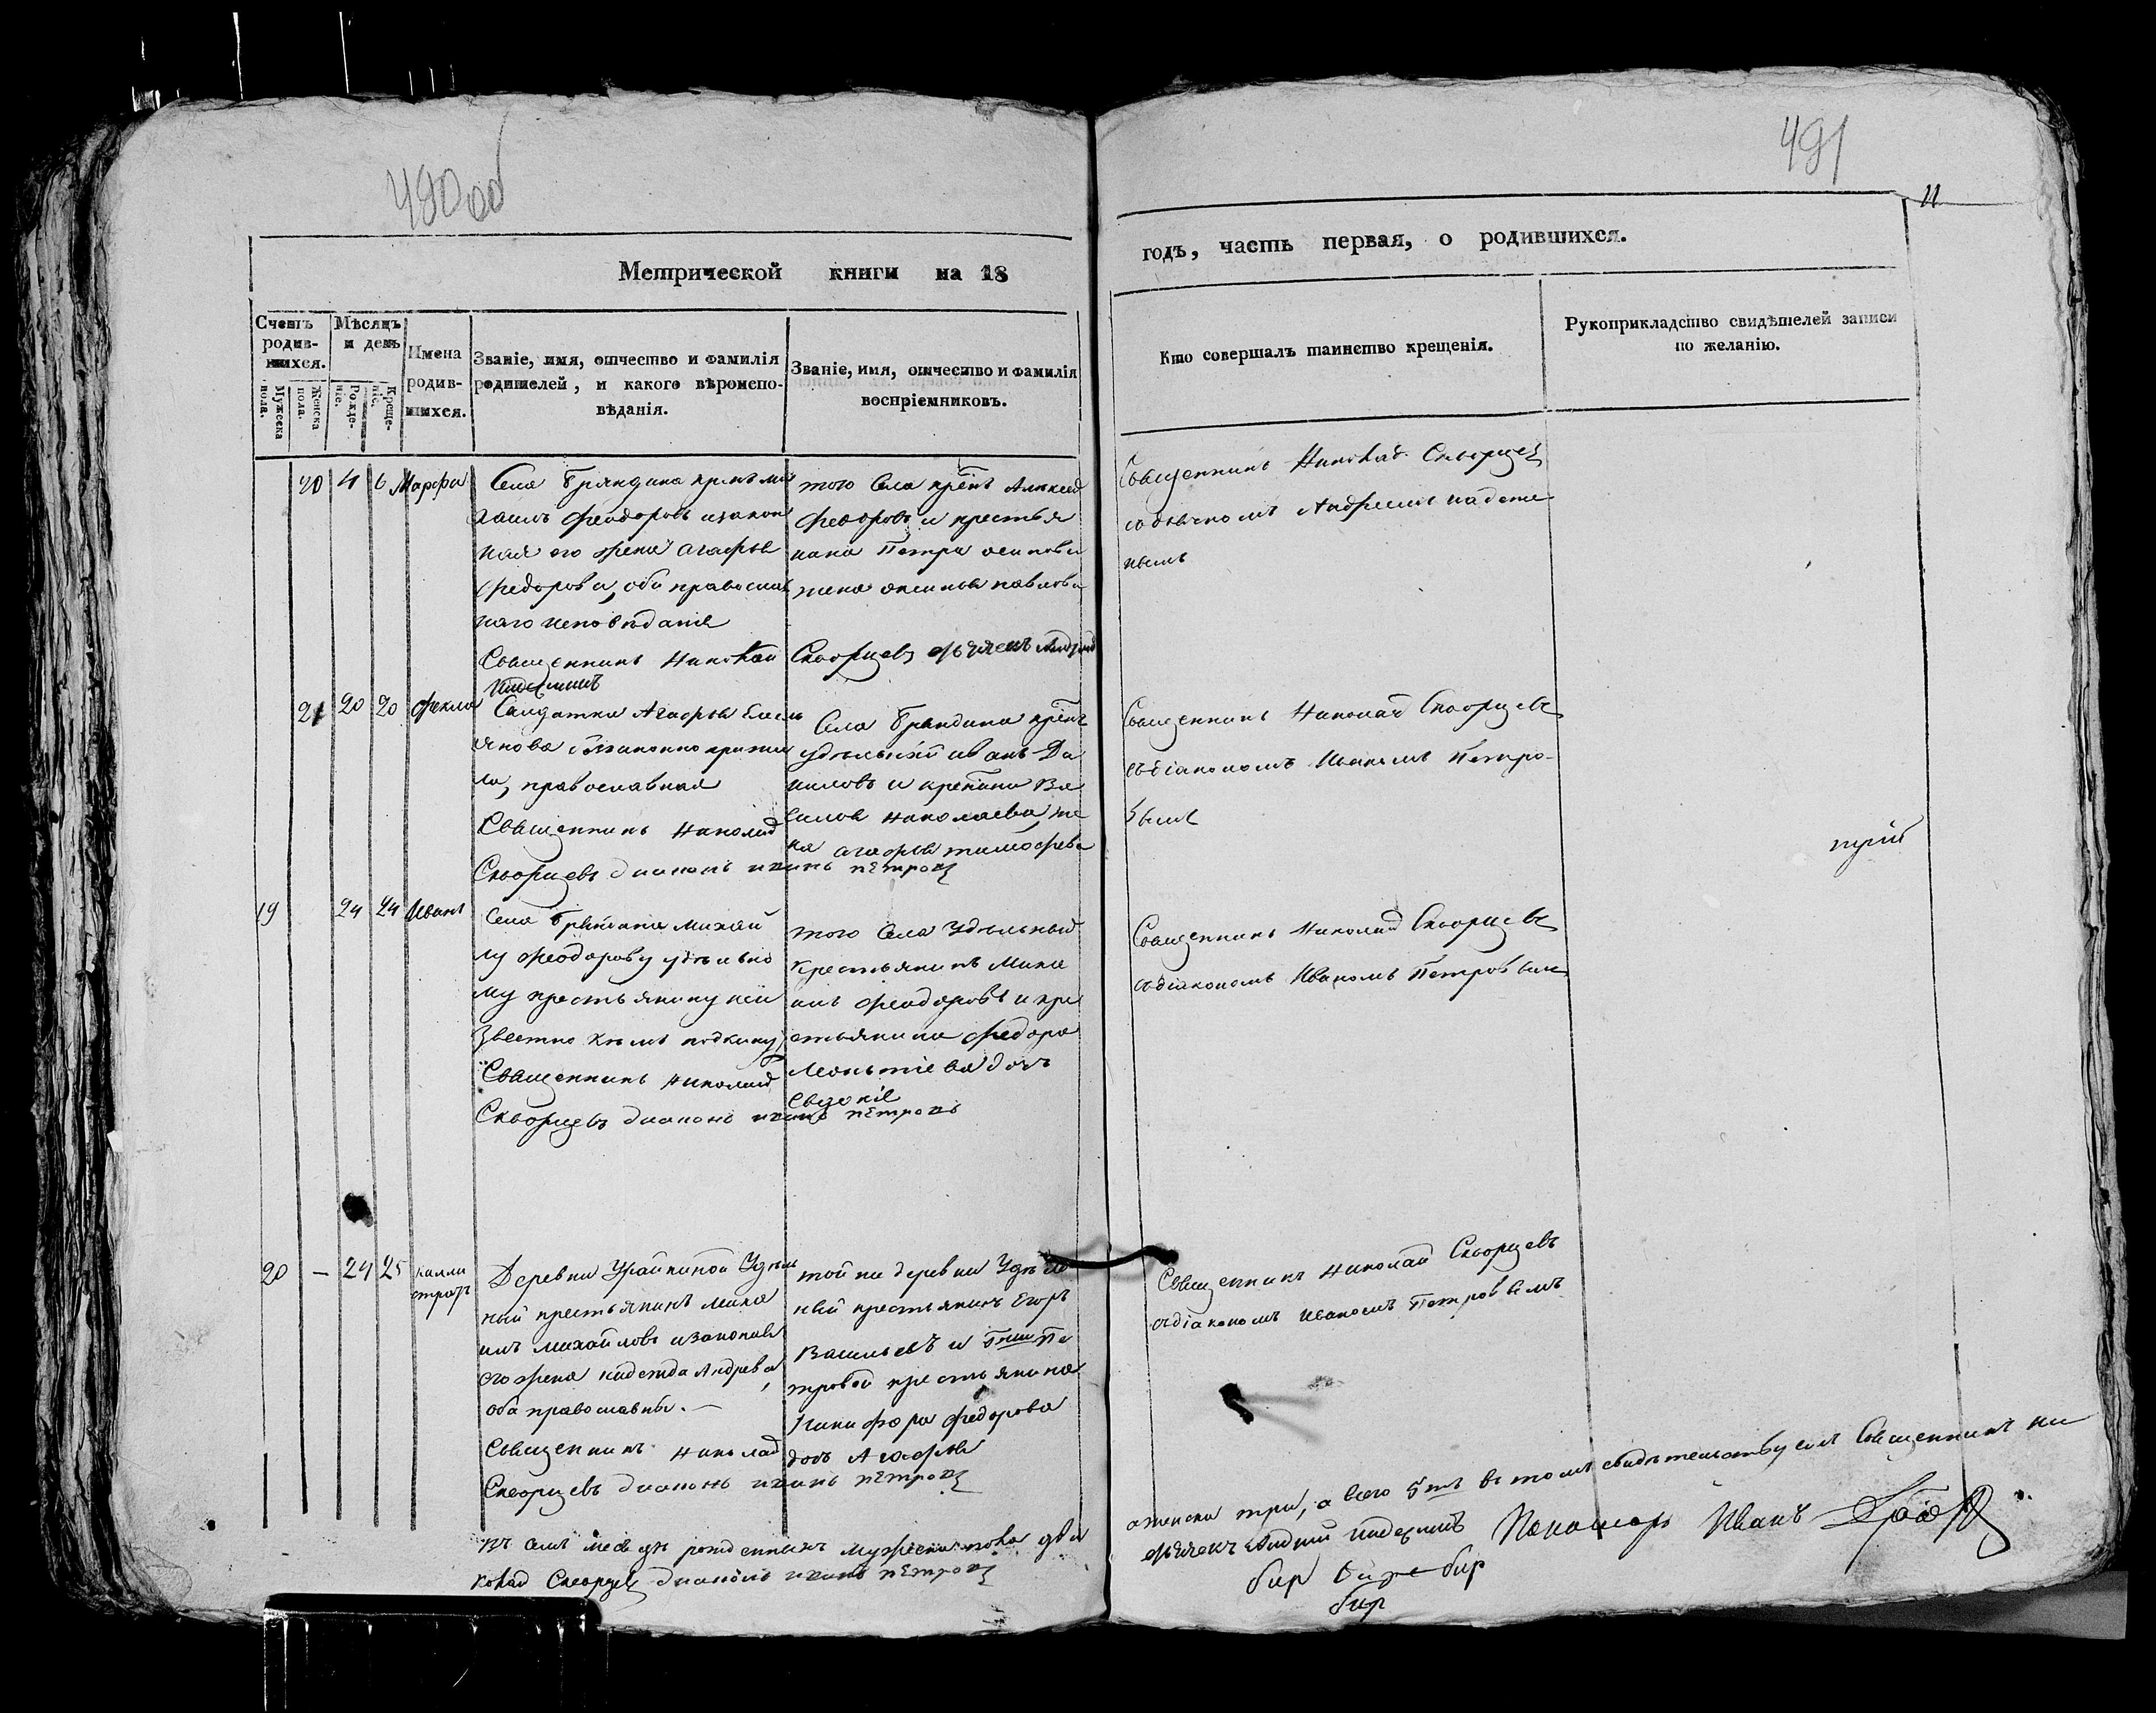 490 об
491
11
Метрической книги на 18
годъ, часть первая, о родившихся.
Счетъ родив-шихся.
Мужеска пола.
Женска пола.
Мѣсяцъ и день
Рожде-ніе.
Креще-ніе.
Имена родив-шихся.
Званіе, имя, отчество и фамилія
родителей, и какого вѣроиспо-
вѣданія.
Званіе, имя, отчество и фамилія
воспріемниковъ.
Кто совершалъ таинство крещенія.
Рукоприкладство свидѣтелей записи
по желанію.
20 4 6 Марфа
Села Бряндина
Феодоровъ изакон
ная его жена Агафья
Федорова, оба православ
наго исповѣданія
Священникъ Николай
того Села Алексей
Федоровъ и крестья
нина Петра осипова
жена павлова
Скворцевъ Андрей
Священникъ Николай Скворцев
Андреемъ надежи
нымъ
21 20 20 Фекла
Салдатка Агафья Емель
янова беззаконно прижи
ла, православная
Священникъ Николай
Скворцевъ диаконъ иванъ петров
Села Бряндина
удѣльный иванъ Да
ниловъ и Ва
силья николаева же
на агафья тимофева
Священникъ Николай Скворцевъ
съдіакономъ Иваномъ Петро-
вымъ
19 24 24 Иванъ
Села Бряндина Михай
лу Феодорову удѣльно
му крестьянину неи
звестно кѣмъ подкину
Священникъ николай
Скворцевъ диаконъ иванъ петровъ
того Села Удѣльный
Крестьянинъ Миха
илъ Феодоровъ и кре
стьянина Федора
Леонтіева дочь
Евгенія
Священникъ Николай Скворцевъ
съдіакономъ Иваномъ Петровым
20 — 24 25 Калли
стратъ
Деревни Урайкиной Удѣль
ный крестьянинъ Миха
илъ Михайловъ изаконная
его жена надежда Андрева,
оба православны. —
Священникъ николай
Скворцевъ диаконъ иванъ петров
той же деревни Удѣль
ный крестьянинъ Егоръ
Васильевъ и
тровой крестьянина
Никифора Федорова
дочь Агафья
Священникъ николай Скворцевъ
съдіакономъ Иваномъ Петровымъ
месяцѣ рожденныхъ мужеска пола два
аженска три, а всего 5ть въ томъ свидѣтельствуемъ Священникъ ни
колай Скворцев диаконъ иванъ петров
Андрей надежинъ Пономарь Иванъ